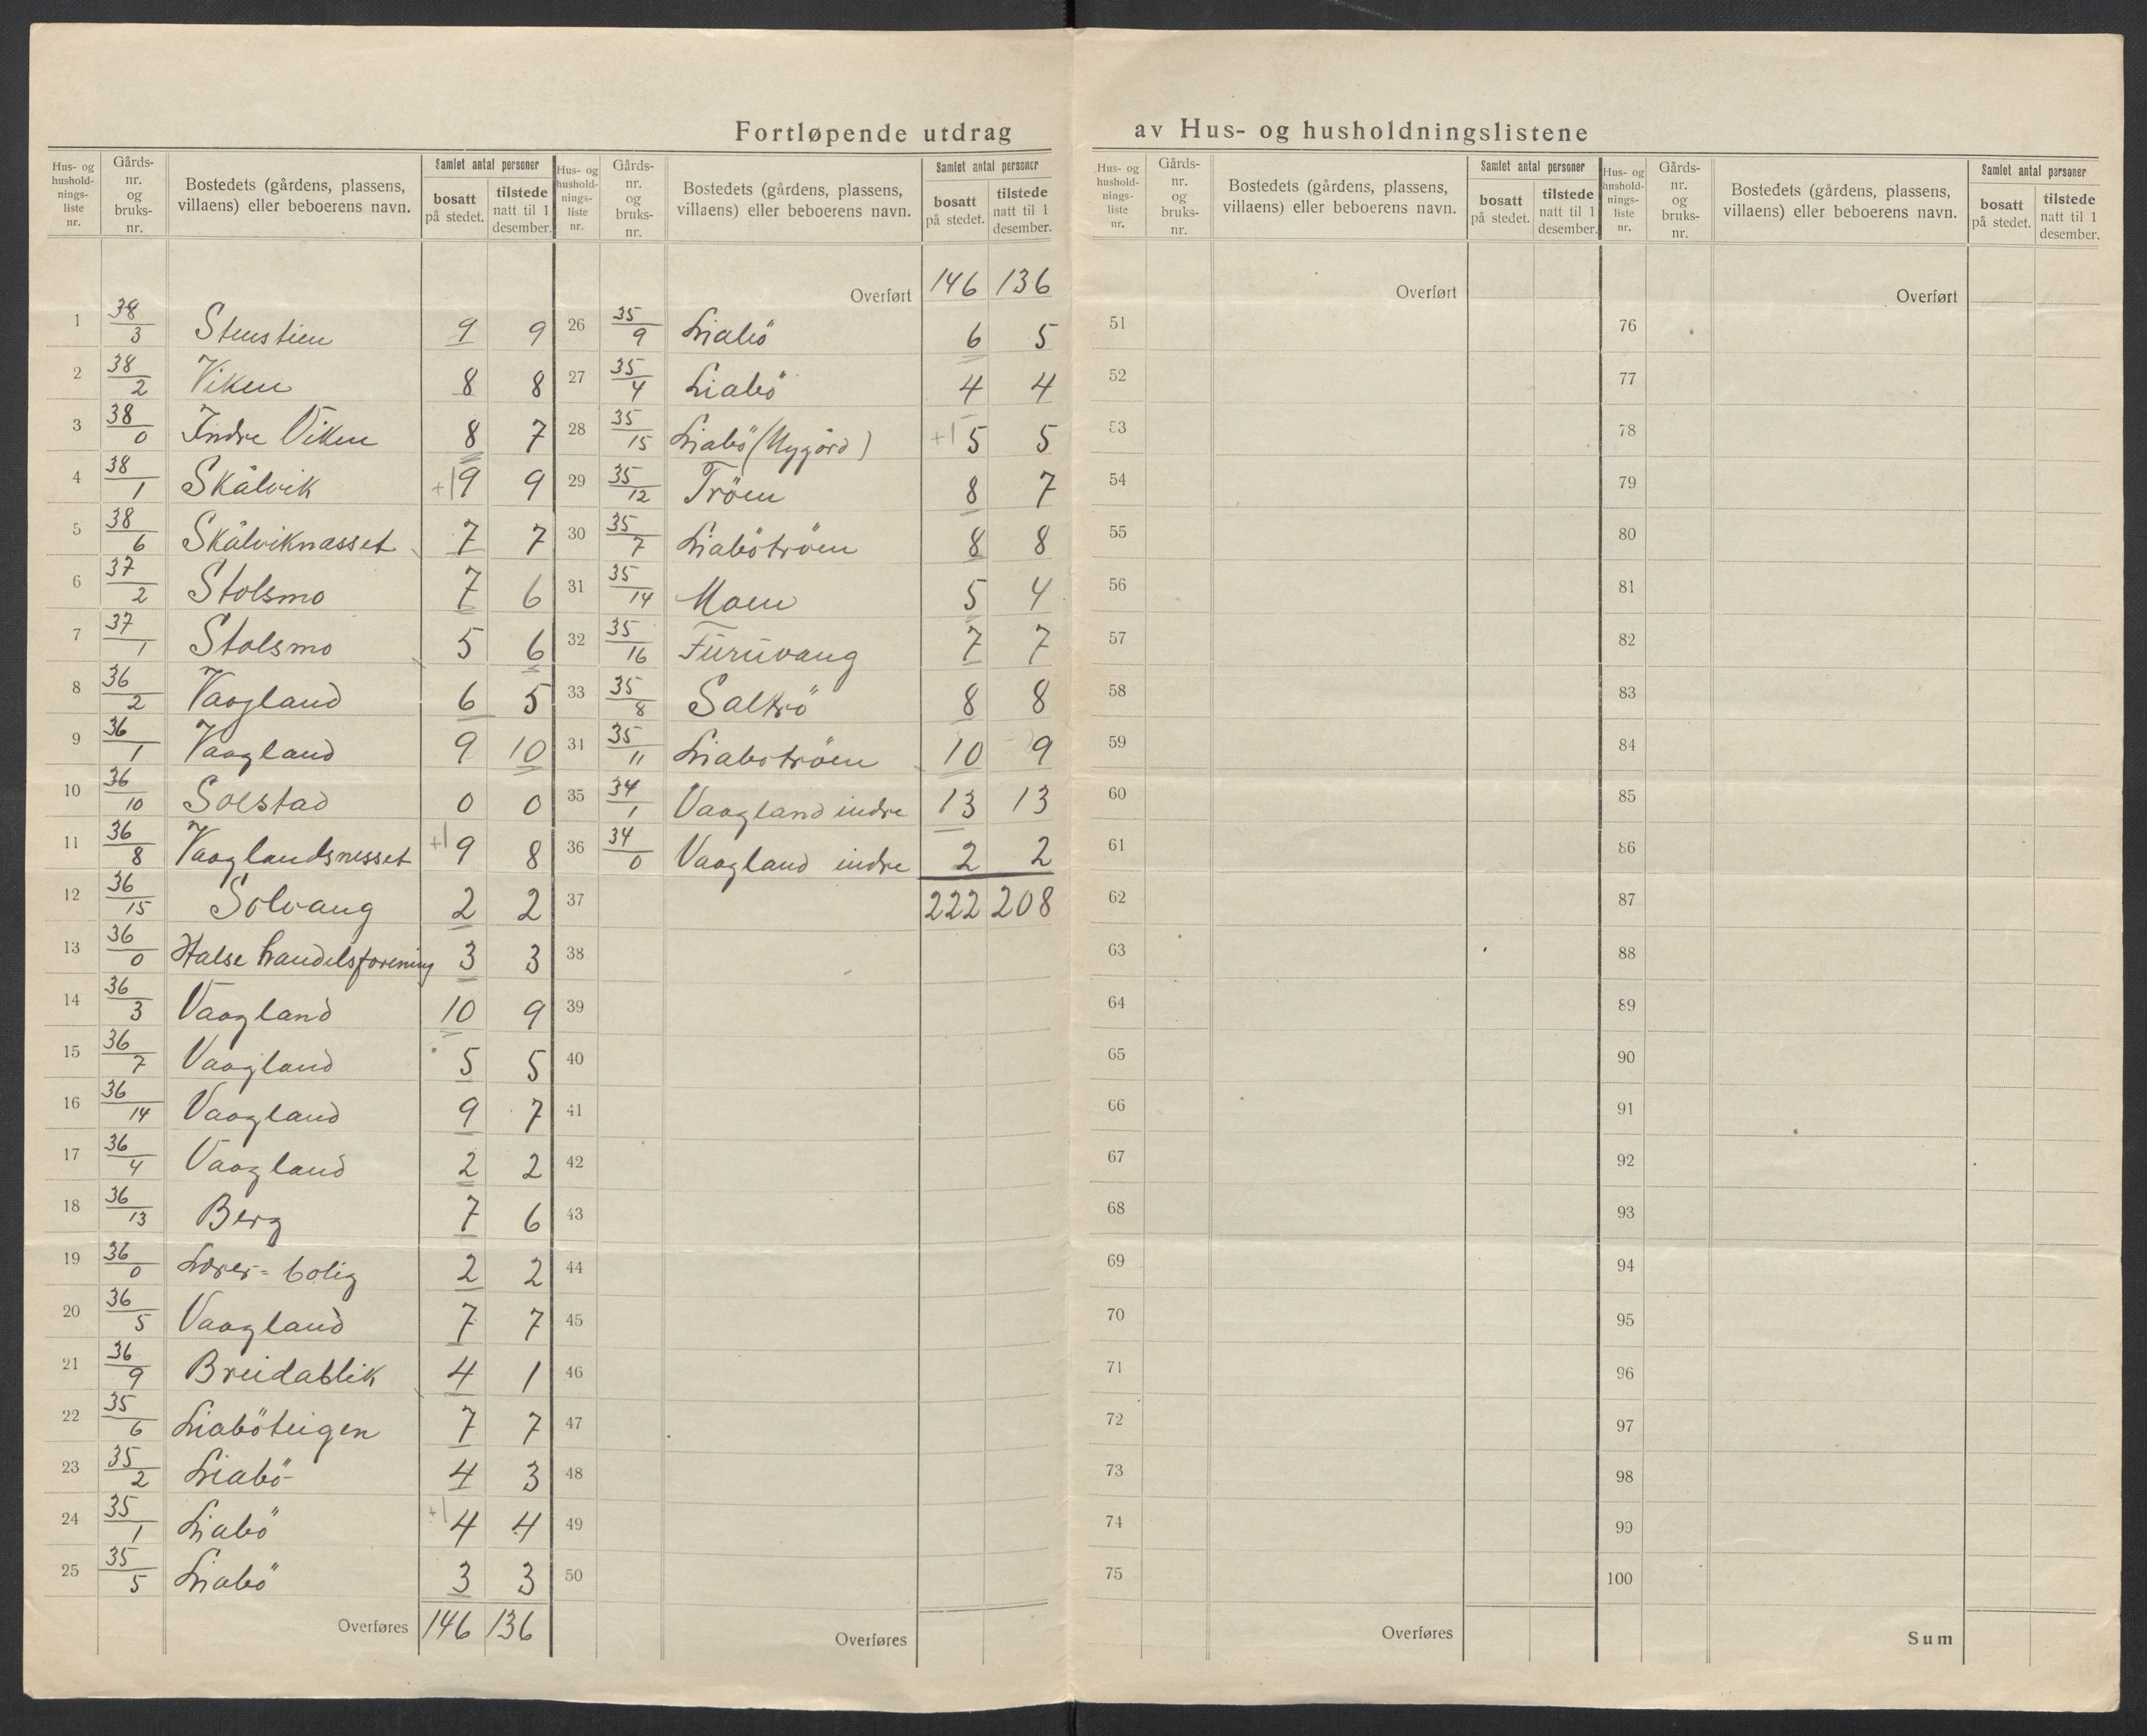 Fortløpende utdrag av Hus- og husholdningslistene
Hus- og hushold-nings-liste nr. | Gårds-nr. og bruks-nr. | Bostedets (gårdens, plassens, villaens) eller beboerens navn. | Samlet antal personer | bosatt på stedet. | tilstede natt til 1 desember.
1 38/3 Stenstien 9 9
2 38/2 Viken 8 8
3 38/0 Indre Viken 8 7
4 38/1 Skålvik +1 9 9
5 38/6 Skålviknasset 7 7
6 37/2 Stolsmo 7 6
7 37/1 Stolsmo 5 6
8 36/2 Vaagland 6 5
9 36/1 Vaagland 9 10
10 36/10 Solstad 0 0
11 36/8 Vaaglandsnesset +1 9 8
12 36/15 Solvang 2 2
13 36/0 Halse handelsforening 3 3
14 36/3 Vaagland 10 9
15 36/7 Vaagland 5 5
16 36/14 Vaagland 9 7
17 36/4 Vaagland 2 2
18 36/13 Berg 7 6
19 36/0 Lærer=bolig 2 2
20 36/5 Vaagland 7 7
21 36/9 Breidablik 4 1
22 35/6 Liaböteigen 7 7
23 35/2 Liabö 4 3
24 35/1 Liabö +1 4 4
25 35/5 Liabö 3 3
Overføres 146 136
Hus- og hushold-nings-liste nr. | Gårds-nr. og bruks-nr. | Bostedets (gårdens, plassens, villaens) eller beboerens navn. | Samlet antal personer | bosatt på stedet. | tilstede natt til 1 desember.
Overført 146 136
26 35/9 Liabö 6 5
27 35/4 Liabö 4 4
28 35/15 Liabö (Nygård) +1 5 5
29 35/12 Tröen 8 7
30 35/7 Liaböströen 8 8
31 35/14 Moen 5 4
32 35/16 Furuvang 7 7
33 35/8 Saltrö 8 8
34 35/11 Liabotröen 10 9
35 34/1 Vaagland indre 13 13
36 34/0 Vaagland indre 2 2
37 222 208
38
39
40
41
42
43
44
45
46
47
48
49
50
Overføres
Hus- og hushold-nings-liste nr. | Gårds-nr. og bruks-nr. | Bostedets (gårdens, plassens, villaens) eller beboerens navn. | Samlet antal personer | bosatt på stedet. | tilstede natt til 1 desember.
Overført
51
52
53
54
55
56
57
58
59
60
61
62
63
64
65
66
67
68
69
70
71
72
73
74
75
Overføres
Hus- og hushold-nings-liste nr. | Gårds-nr. og bruks-nr. | Bostedets (gårdens, plassens, villaens) eller beboerens navn. | Samlet antal personer | bosatt på stedet. | tilstede natt til 1 desember.
Overført
76
77
78
79
80
81
82
83
84
85
86
87
88
89
90
91
92
93
94
95
96
97
98
99
100
Sum